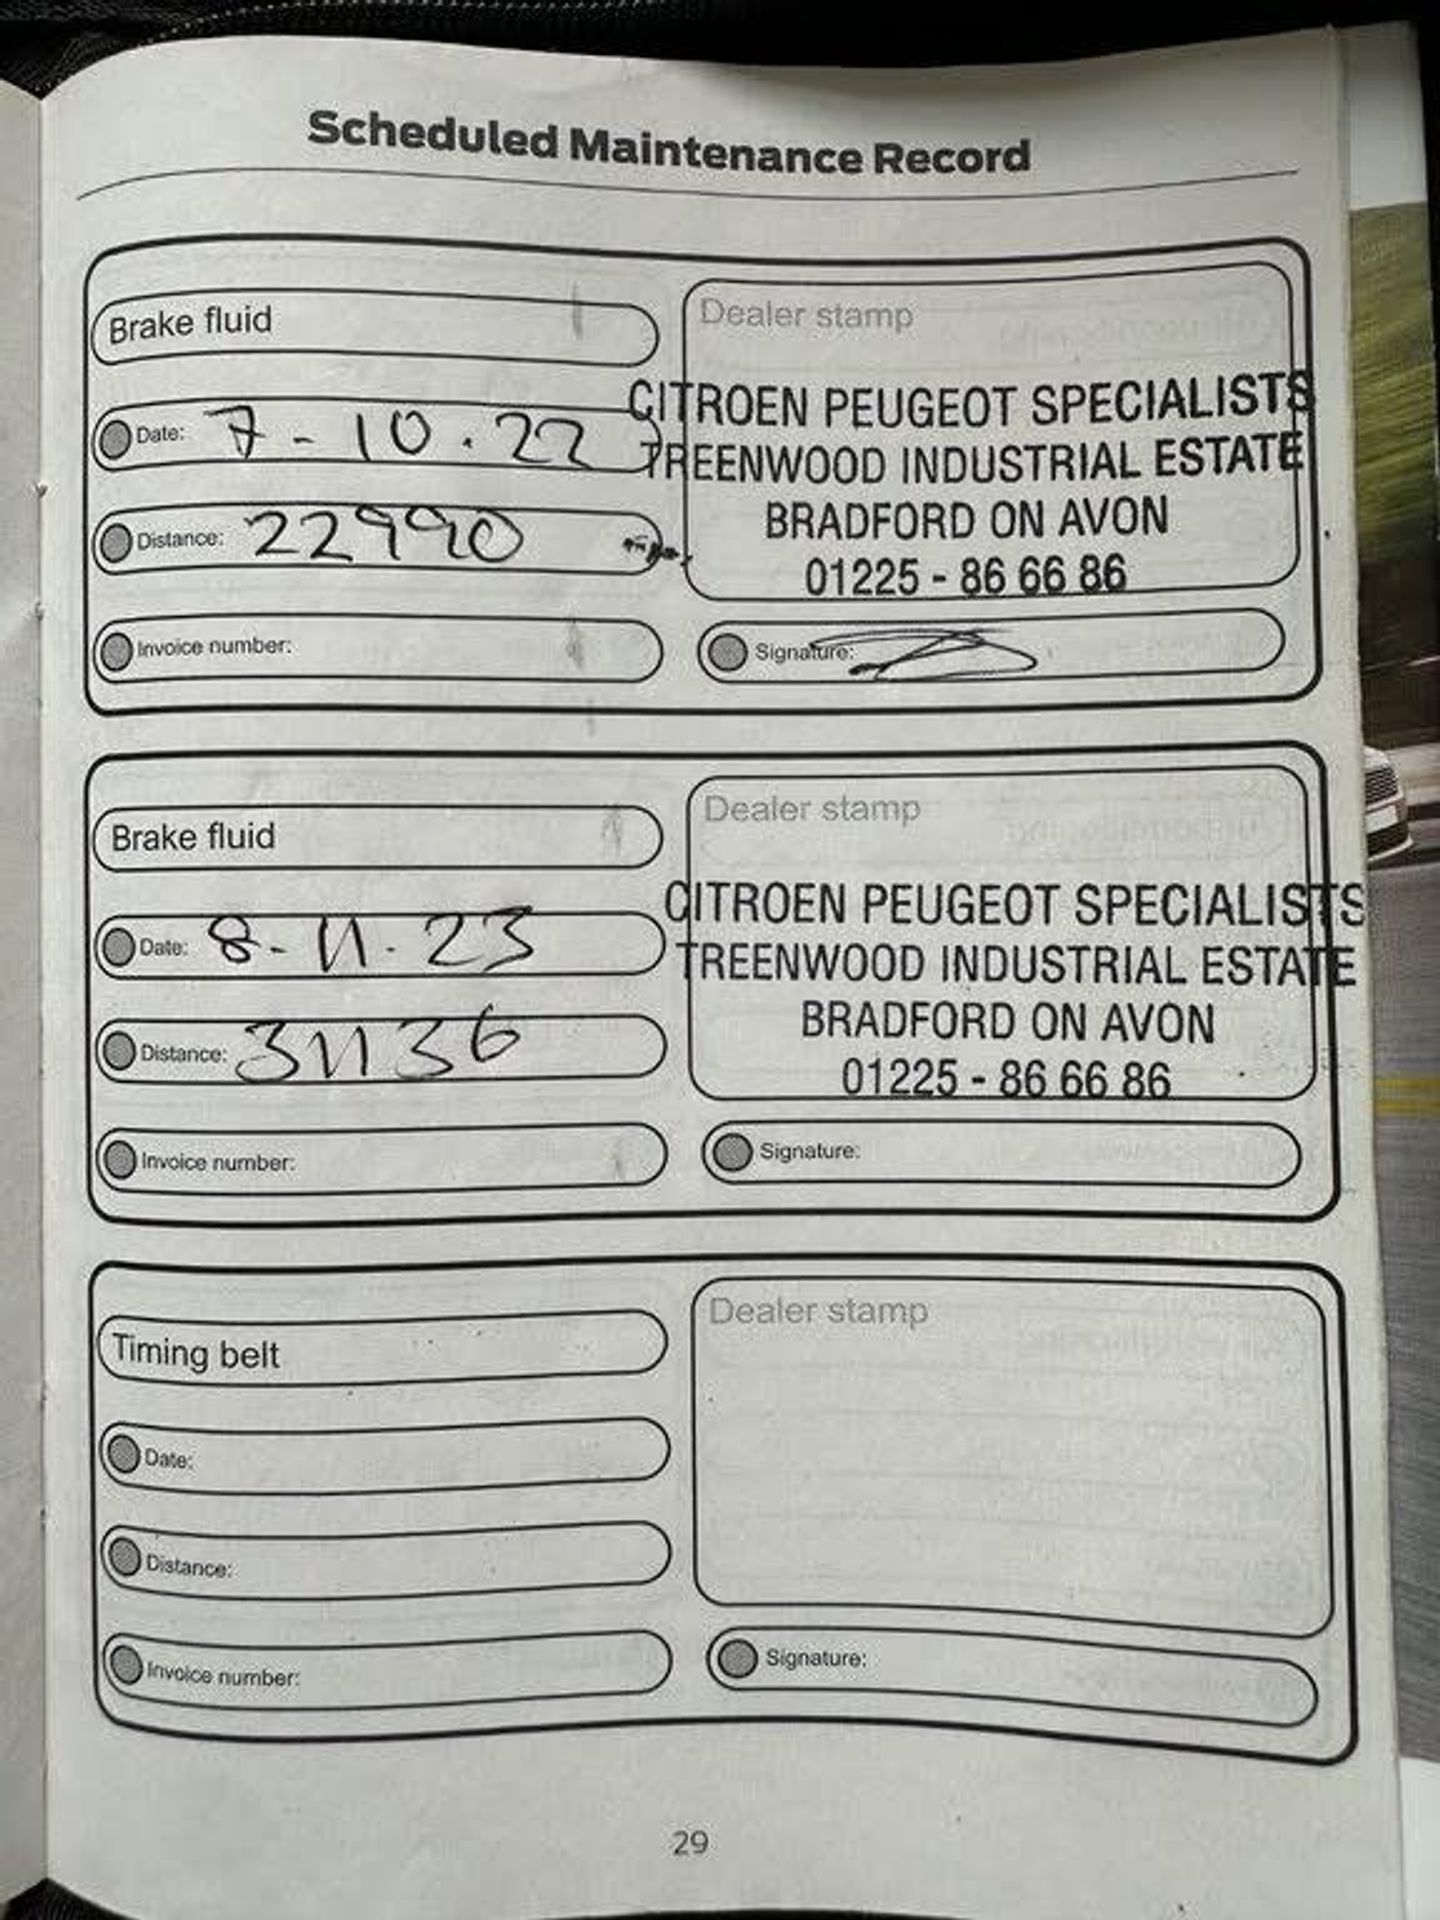 Scheduled Maintenance Record
Brake fluid
Dealer stamp
CITROEN PEUGEOT SPECIALISTS
TREENWOOD INDUSTRIAL ESTATE
BRADFORD ON AVON
01225 - 86 66 86
Date: 7 - 10 . 22
Distance: 22990
Invoice number:
Signature:
Brake fluid
Dealer stamp
CITROEN PEUGEOT SPECIALISTS
TREENWOOD INDUSTRIAL ESTATE
BRADFORD ON AVON
01225 - 86 66 86
Date: 8 - 11 . 23
Distance: 31136
Invoice number:
Signature:
Timing belt
Dealer stamp
Date:
Distance:
Invoice number:
Signature:
29